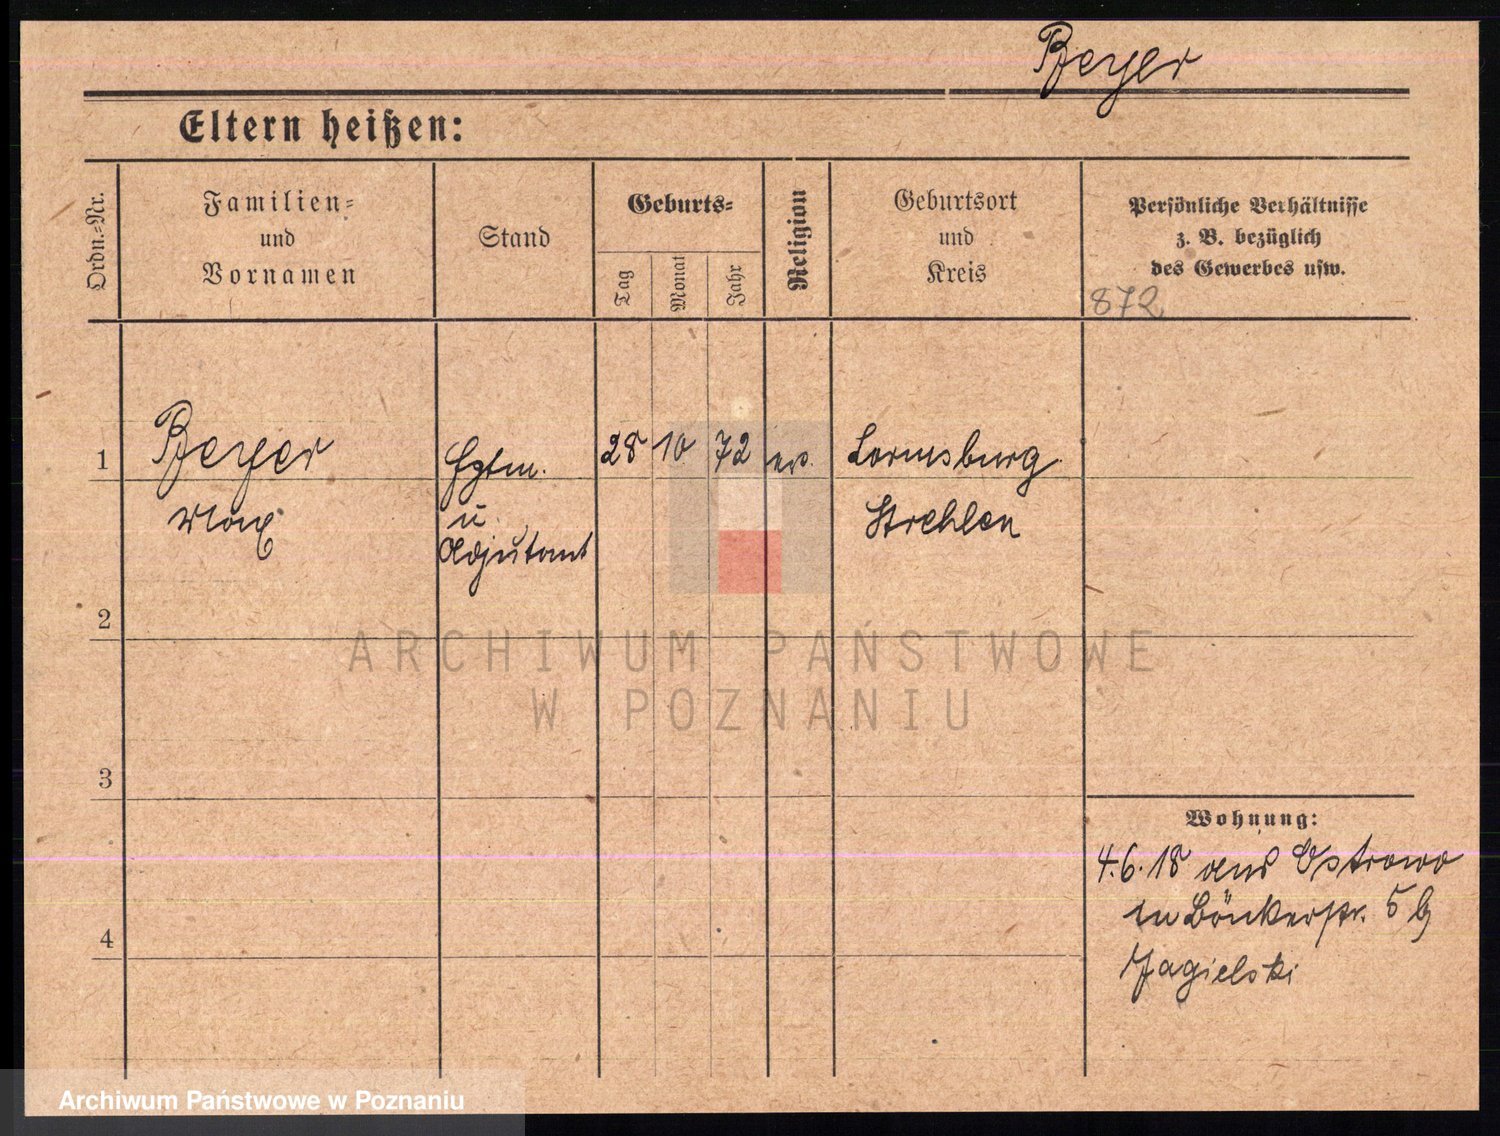 Beyer
Eltern heißen:
Ordn.=Nr.
Familien=
und
Vornamen
Stand
Geburts=
Tag
Monat
Jahr
Religion
Geburtsort
und
Kreis
Persönliche Verhältnisse
z. B. bezüglich
des Gewerbes usw.
872
1
Beyer
Max
Hptm.
u.
Adjutant
28 10 72 ev.
Strehlen
2
ARCHIWUM PAŃSTWOWE
W POZNANIU
3
Wohnung:
4.6.18 aus Ostrowo
5
Jagielski
4
Archiwum Państwowe w Poznaniu